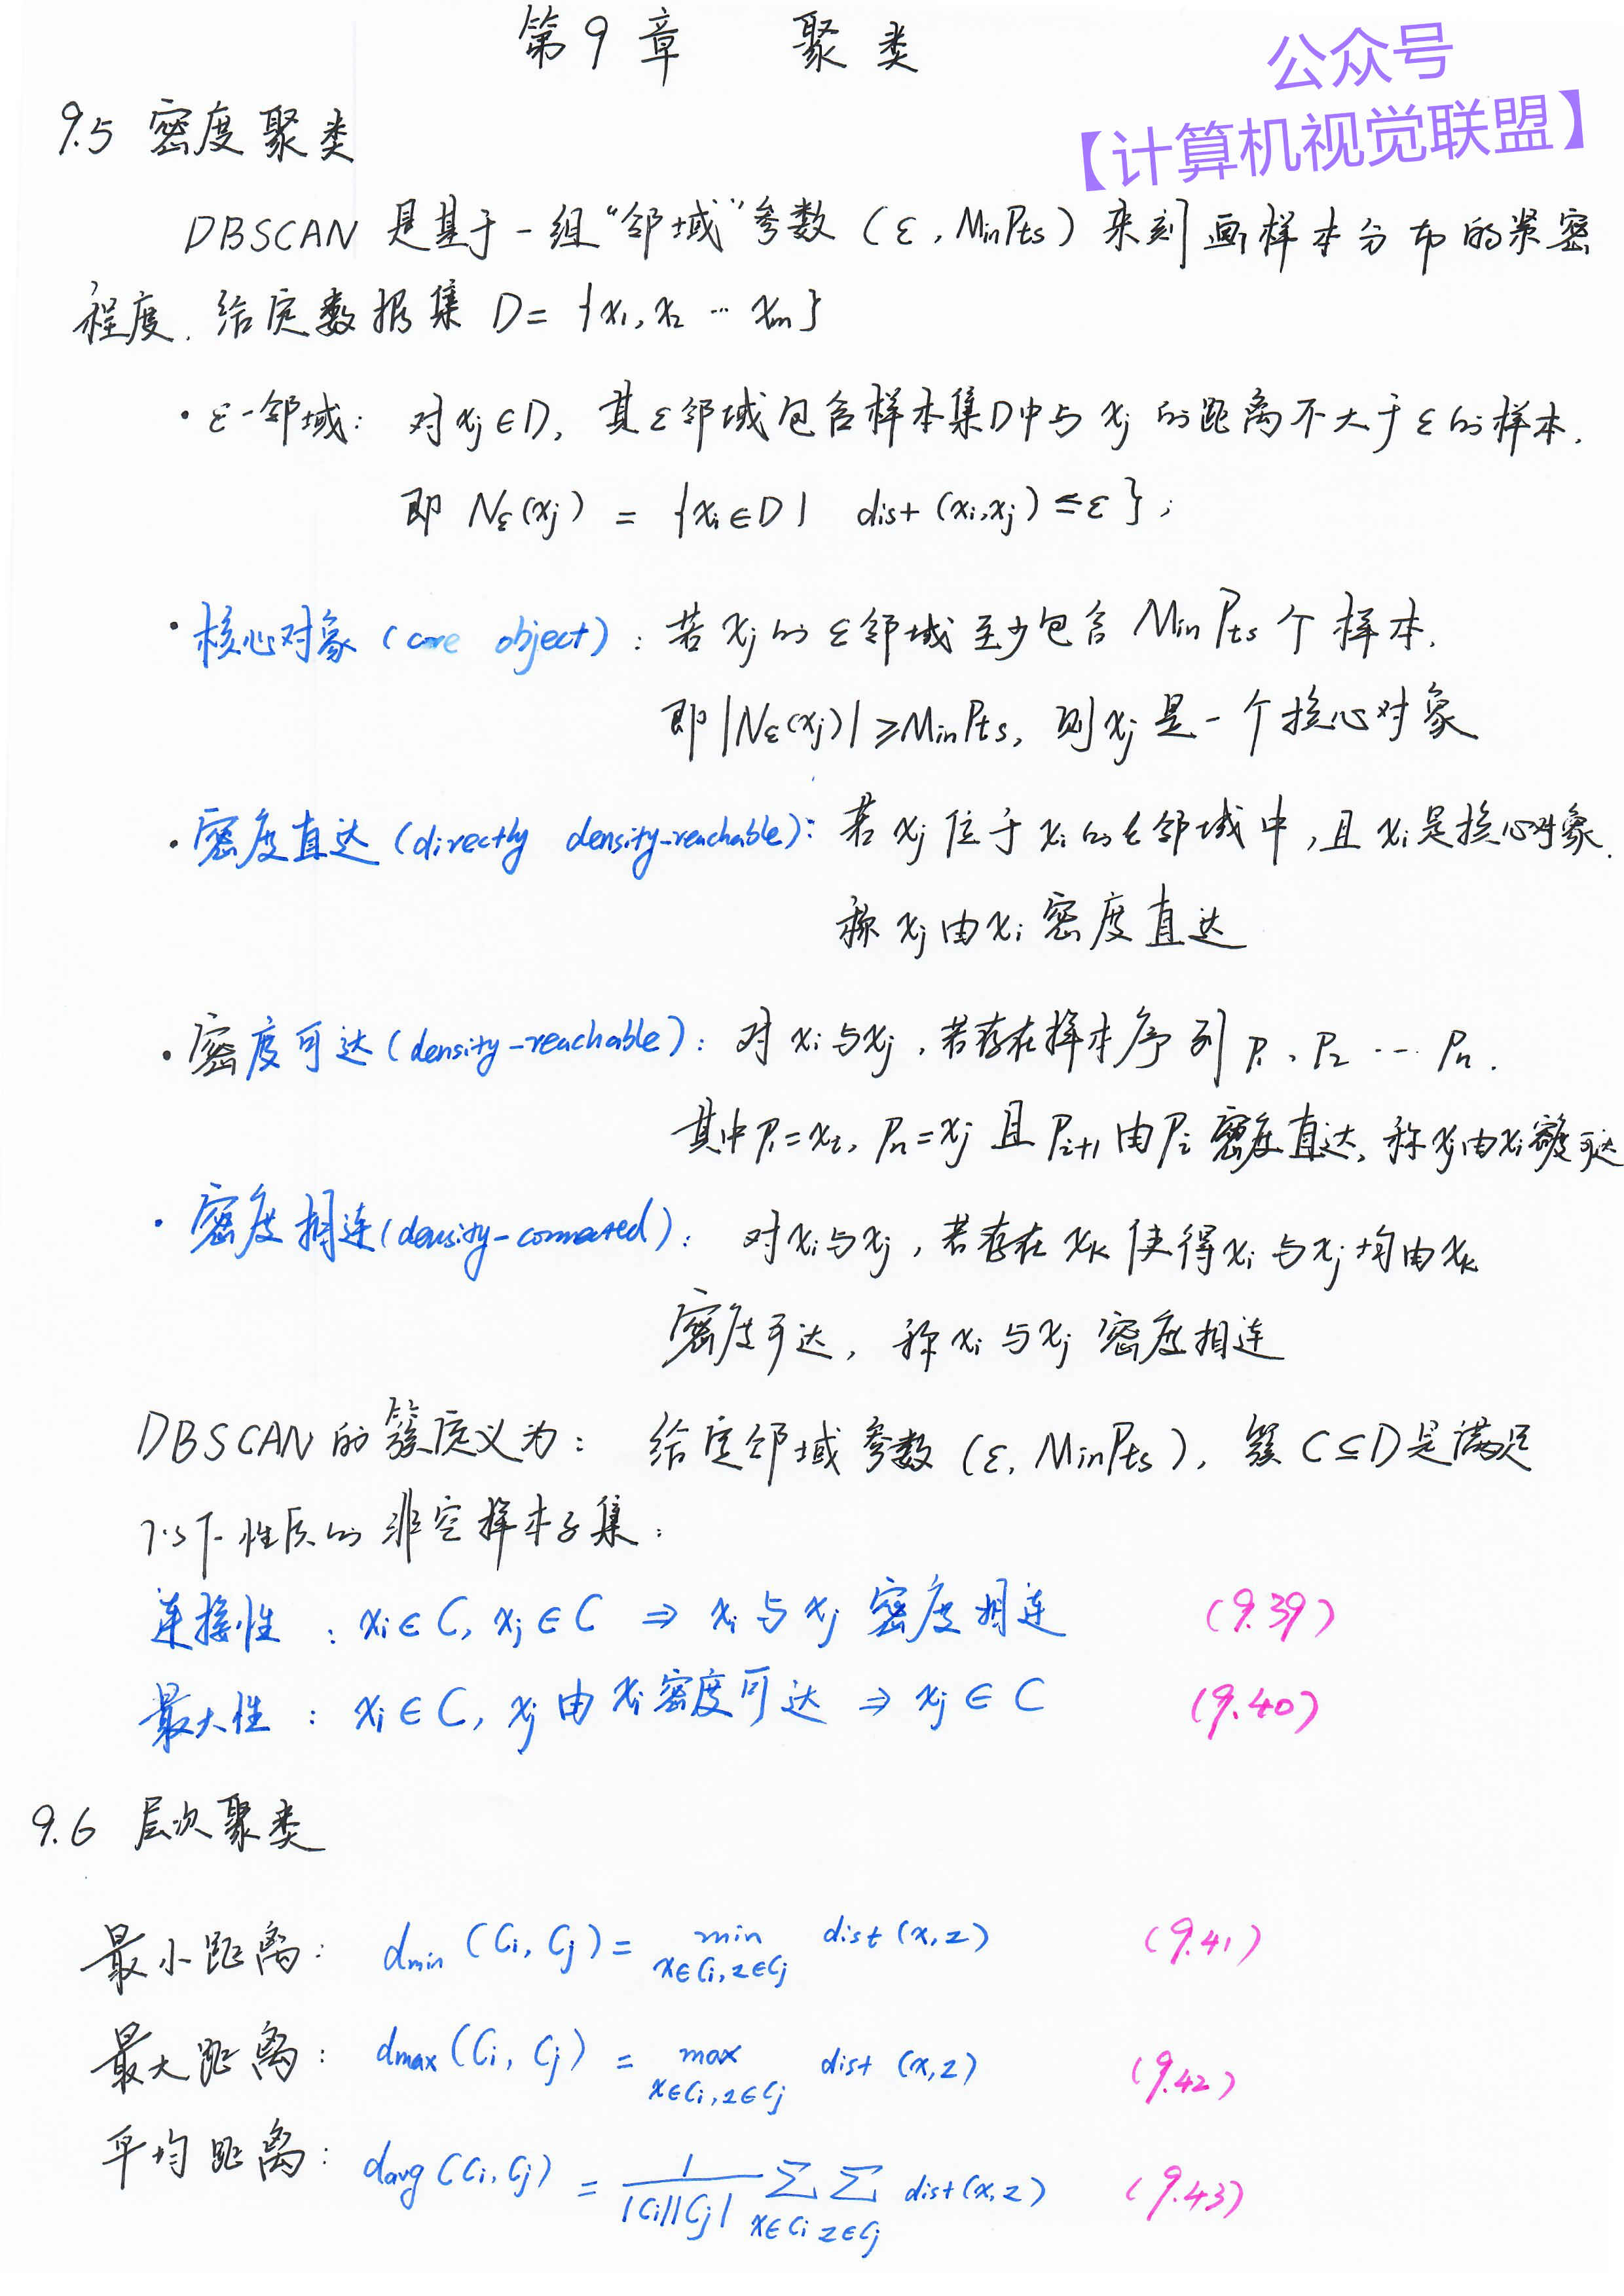 第9章 聚类
公众号
【计算机视觉联盟】
9.5 密度聚类
DBSCAN 是基于一组“邻域”参数（ε, MinPts）来刻画样本分布的紧密
程度. 给定数据集 D = {x₁, x₂ … xₘ}
· ε-邻域: 对xⱼ∈D, 其ε邻域包含样本集D中与 xⱼ 的距离不大于ε的样本.
即 Nε(xⱼ) = {xᵢ∈D | dist(xᵢ,xⱼ) ≤ε};
· 核心对象 (core object): 若xⱼ的ε邻域至少包含 MinPts 个样本.
即 |Nε(xⱼ)| ≥MinPts, 则xⱼ是一个核心对象
· 密度直达 (directly density-reachable): 若xⱼ位于xᵢ的ε邻域中, 且xᵢ是核心对象.
称xⱼ由xᵢ密度直达
· 密度可达 (density-reachable): 对xᵢ与xⱼ, 若存在样本序列 P₁, P₂ … Pₙ.
其中P₁=xᵢ, Pₙ=xⱼ 且 Pᵢ₊₁由Pᵢ密度直达, 称xⱼ由xᵢ密度可达
· 密度相连 (density-connected): 对xᵢ与xⱼ, 若存在xₖ使得xᵢ与xⱼ均由xₖ
密度可达, 称xᵢ与xⱼ密度相连
DBSCAN 的簇定义为: 给定邻域参数 (ε, MinPts), 簇 C⊆D是满足
以下性质的非空样本子集:
连接性: xᵢ∈C, xⱼ∈C ⇒ xᵢ与xⱼ密度相连 (9.39)
最大性: xᵢ∈C, xⱼ由xᵢ密度可达 ⇒ xⱼ∈C (9.40)
9.6 层次聚类
最小距离: d_min (Cᵢ, Cⱼ) = min_{x∈Cᵢ, z∈Cⱼ} dist(x, z) (9.41)
最大距离: d_max (Cᵢ, Cⱼ) = max_{x∈Cᵢ, z∈Cⱼ} dist(x, z) (9.42)
平均距离: d_avg (Cᵢ, Cⱼ) = 1/(|Cᵢ||Cⱼ|) Σ_{x∈Cᵢ} Σ_{z∈Cⱼ} dist(x, z) (9.43)